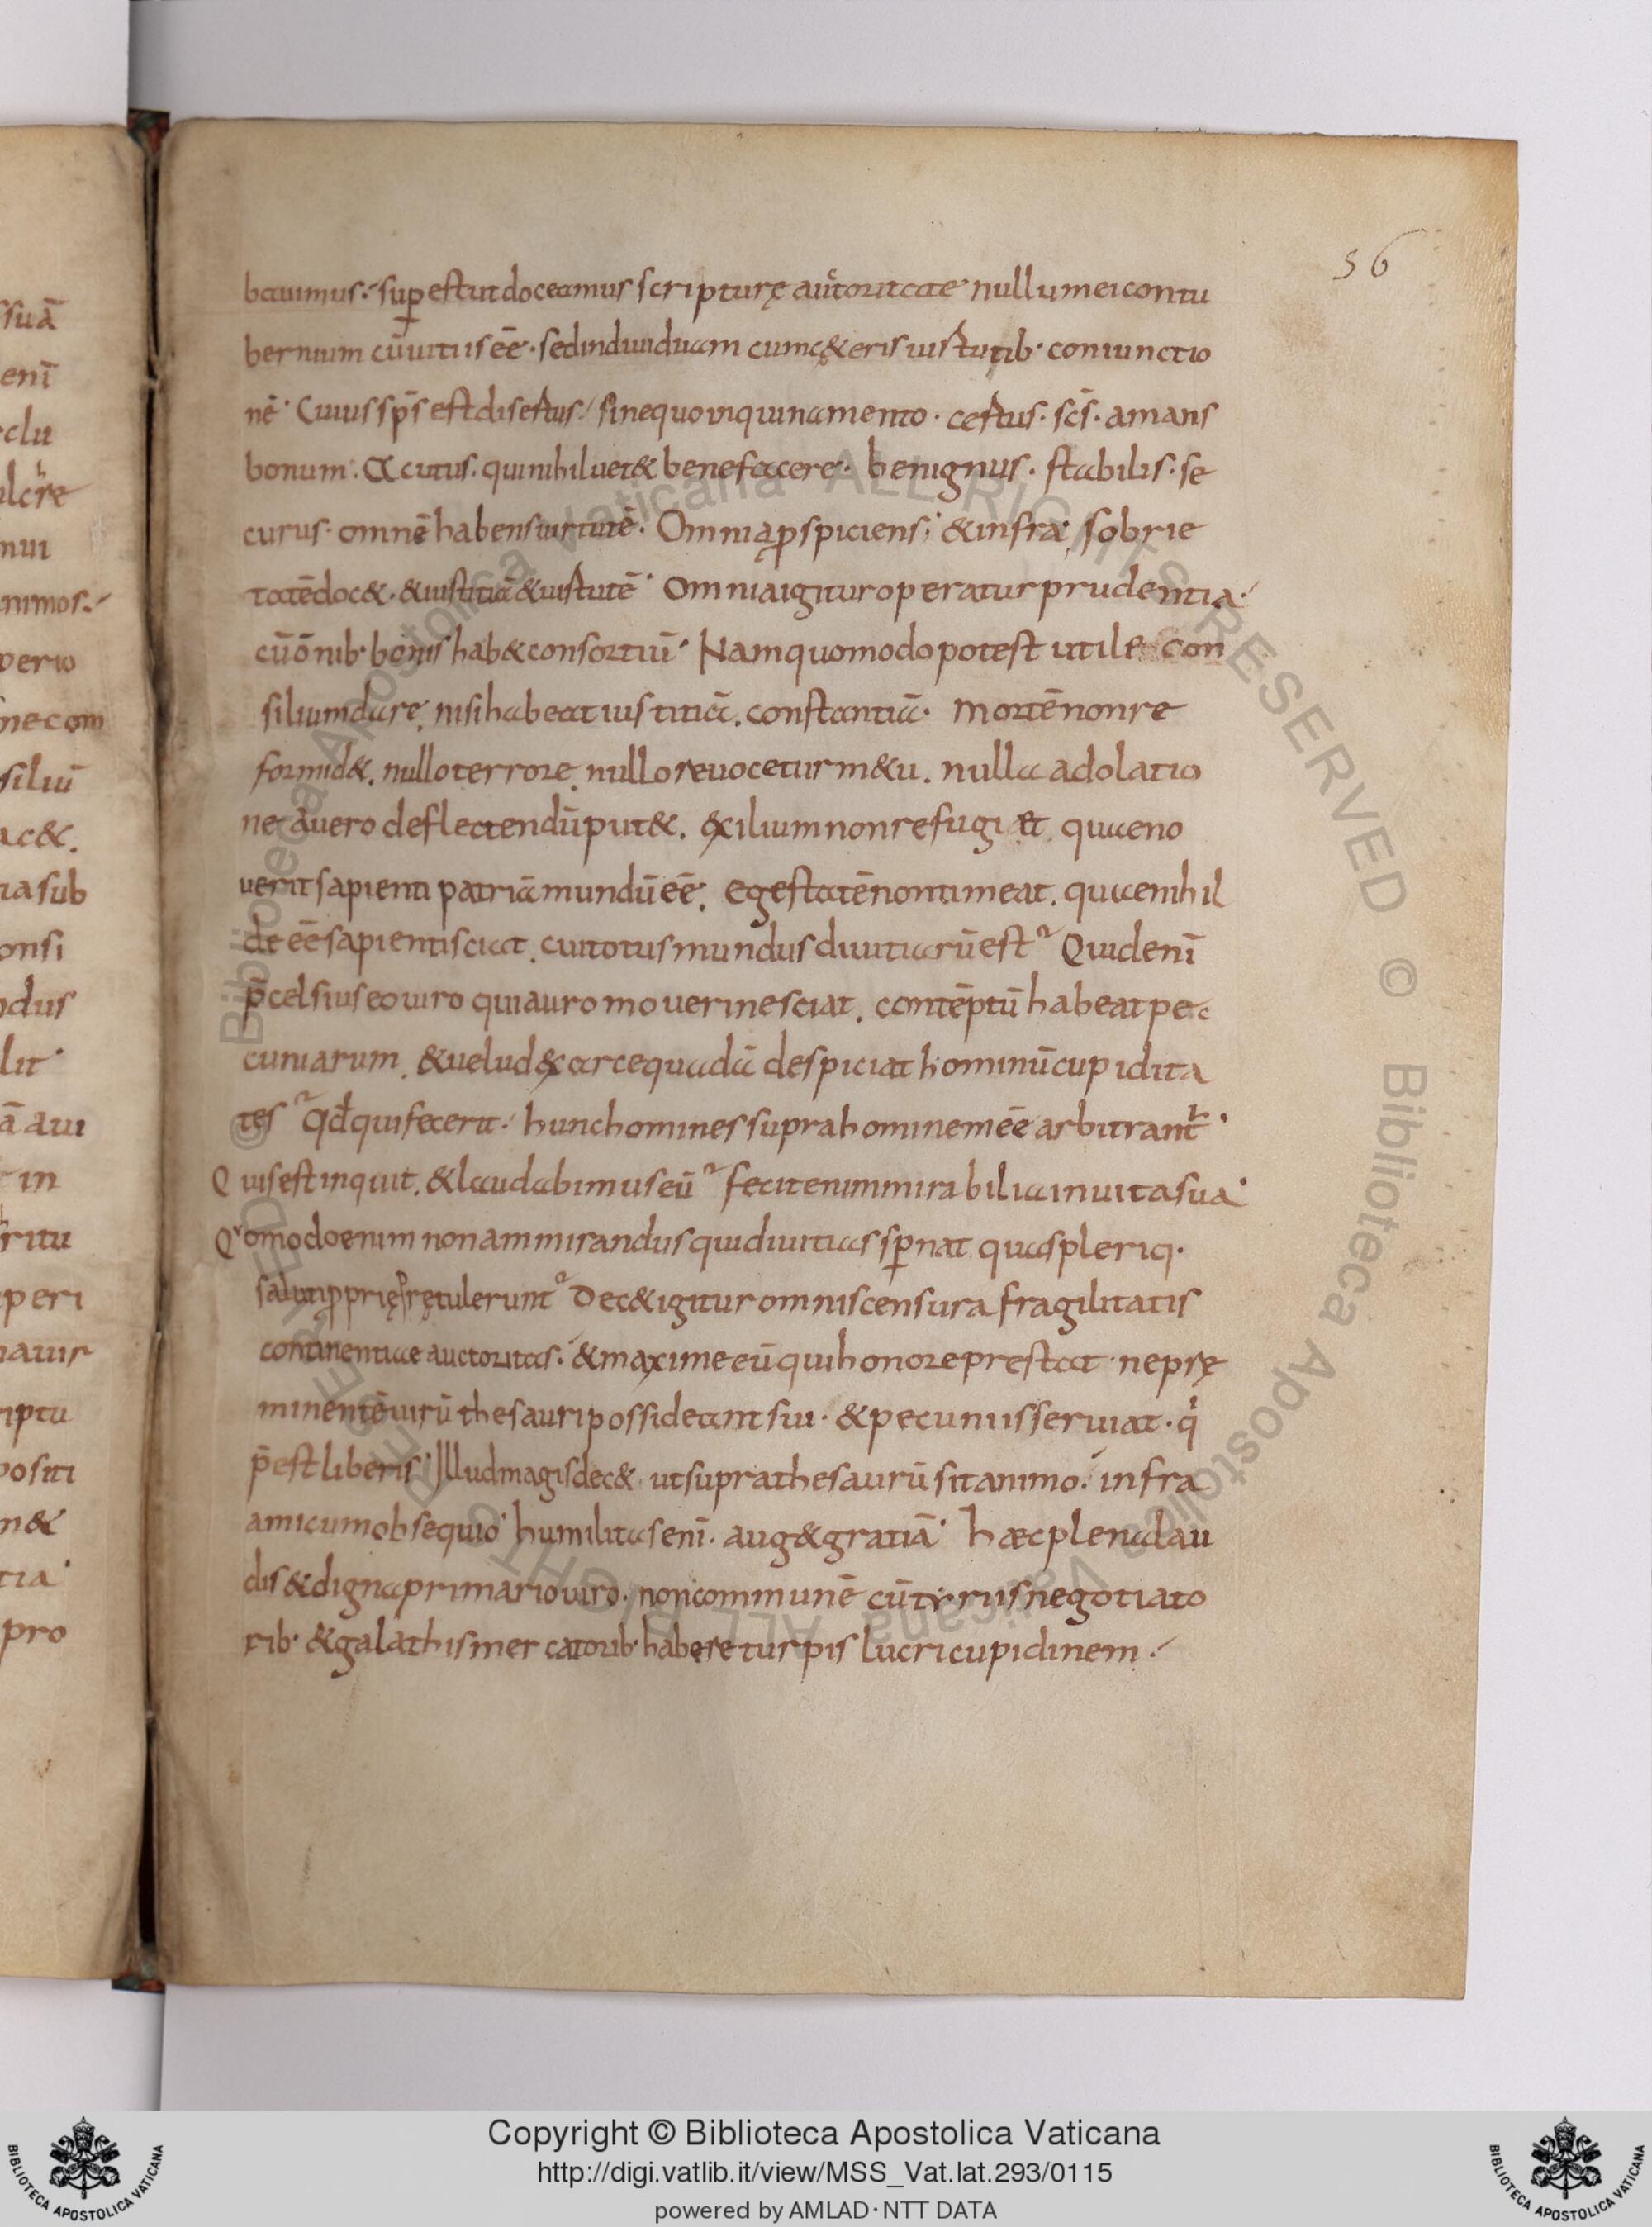 56
bauimus. sup̱ est ut doceamus scripturę auctoritate nullum ei contu
bernium cū uitiis eē. sed indiuiduam cum cęteris uirtutib· coniunctio
nē. Cuius sp̄s est disertus. sine quo inquinamento. certus. sc̄s. amans
bonum. Acutus. qui nihil uet& benefacere. benignus. stabilis. se
curus. omnē habens uirtutē. Omnia ꝓspiciens. & infra. sobrie
tatē doc&. & iustitiā & uirtutē. Omnia igitur operatur prudentia.
cū ōnib· bonis hab& consortiū. Nam quomodo potest utile con
silium dare. nisi habeat iustitiā. constantiā. mortē non re
formid&. nullo terrore. nullo reuocetur m&u. nulla adolatio
ne a uero deflectendū put&. exilium non refugiæt. quae no
uerit sapienti patriā mundū eē. egestatē non timeat. quae nihil
de eē sapienti sciat. cui totus mundus diuitiarū est? Quid enī
p̄celsius eo uiro qui auro moueri nesciat. contēptū habeat pec
cuniarum. & uelud ex arce quadā despiciat hominū cupidita
tes? Qđ qui fecerit. hunc homines supra hominem eē arbitrant᷑.
Quis est inquit. & laudabimus eū? fecit enim mirabilia in uita sua.
Quomodo enim non ammirandus qui diuitias sp̱nat. quas pleriq·
saluti ꝓprię p̄rętulerunt? Dec& igitur omnis censura fragilitatis
continentiae auctoritas. & maxime eū qui honore prestat. ne prę
minentē uirū thesauri possideant sui. & pecuniis seruiat. qi
p̄est liberis. Illud magis dec& ut supra thesaurū sit animo. infra
amicum obsequio. humilitas enī. aug& gratiā. hæc plena lau
dis & digna primario uiro. non communē cū tyriis negotiato
rib· & galathis mercatorib· habere turpis lucri cupidinem.
suā
enī
clu
lcr̄e
nui
nimos.
perio
ne com
siliū
ac&.
ia sub
onsi
dus
lit
ā aui
in
ritu
peri
auir
riptu
positi
n&
tia
pro
Copyright © Biblioteca Apostolica Vaticana
http://digi.vatlib.it/view/MSS_Vat.lat.293/0115
powered by AMLAD·NTT DATA
BIBLIOTECA APOSTOLICA VATICANA
BIBLIOTECA APOSTOLICA VATICANA